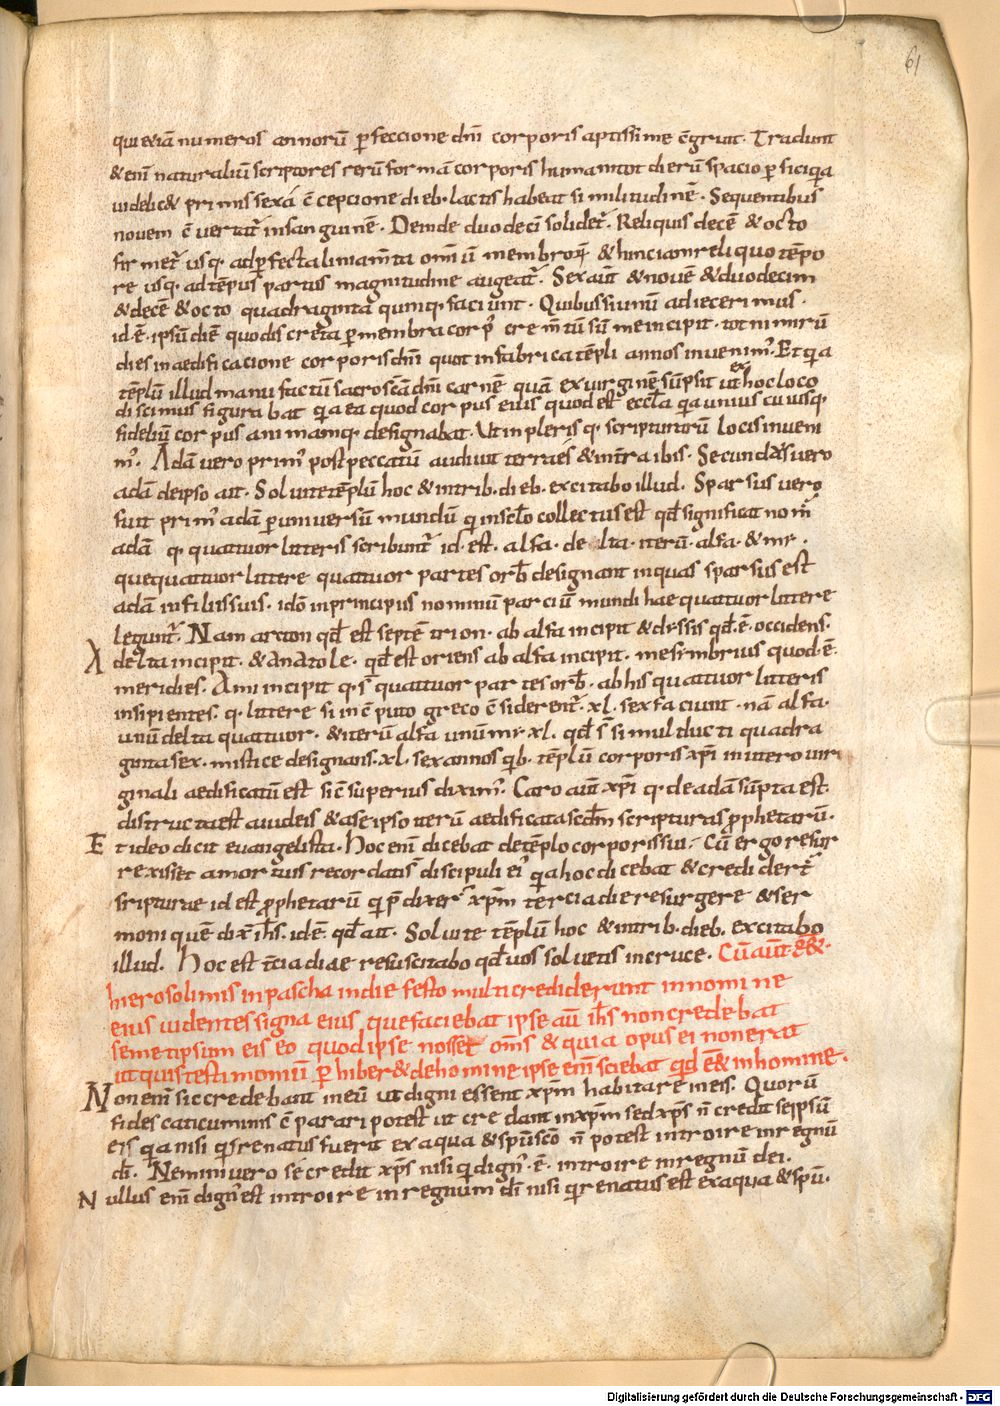 61
qui etiā numeros annorū ꝑfeccione dn̄i corporis aptissime c̄gruit. Tradunt
& enī naturaliū scriptores rerū formā corporis humani tot dierū spacio ꝑfici q̄a
uidelic& primis sex a c̄cepcione dieb. lactis habeat similitudinē. Sequentibus
novem c̄vertat᷑ in sanguinē. Deinde duodecī solidet᷑. Reliquis decē & octo
firmet᷑ usq. ad ꝑfecta liniam̄ta omīū membroꝝ & hinc iam reliquo tēpo
re usq. ad tēpus partus magnitudine augeat᷑. Sex aūt & nouē & duodecim
& decē & octo quadraginta quinq. faciunt. Quibus si unū adiecerimus.
id ē. ipsū diē quo discreta ꝑ membra corpꝰ crem̄tū sūme incipit. tot nimirū
dies in aedificacione corporis dn̄i quot in fabrica tēpli annos invenimꝰ. Et q̄a
tēplū illud manu factū sacroscām dn̄i carnē quā ex virginē sūpsit ut ex hoc loco
discimus figurabat q̄a ea quod corpus eius quod est eccl̄a q̄a unius cuiusq.
fidelīu corpus animamq. designabat. Ut in plerisq. scripturarū locis inveni
mꝰ. Adā vero primꝰ post peccatū audivit terra es & in tr̄a ibis. Secundus vero
adā de ipso ait. Soluite tēplū hoc & in trib. dieb. excitabo illud. Sparsus vero
fuit primꝰ adā ꝑ universū mundū q̄ in sc̄lo collectus est qd̄ significat nom̄
adā q. quattuor litteris scribunt᷑ id. est. alfa. delta. iterū. alfa. & mr.
que quattuor littere quattuor partes orb̄ designant in quas sparsus est
adā in filiis suis. idō in principiis nominū parciū mundi hae quattuor littere
legunt᷑. Nam arcton qd̄ est septētrion. ab alfa incipit & dyssis qd̄. ē. occidens.
delta incipit. & anatole. qd̄ est oriens ab alfa incipit. mesimbrius quod. ē.
meridies. A mi incipit q. s̄ quattuor partes orb̄. ab his quattuor litteris
insipientes. q. littere si in c̄puto greco c̄siderent᷑. xl. sex faciunt. nā alfa.
unū delta quattuor. & iterū alfa unū mr. xl. qd̄ s̄ simul ducti quadra
ginta sex. mistice designans. xl. sex annos q̄b. tēplū corporis xp̄i in utero uir
ginali aedificatū est sic̄ superius diximꝰ. Caro aūt xp̄i q. de adā sūpta est.
distructa est a iudeis & a se ipso iterū aedificata scd̄m scripturas ꝓphetarū.
Et ideo dicit evangelista. Hoc enī dicebat de tēplo corporis sui. Cū ergo resur
rexisset a mortuis recordati s̄ discipuli eiꝰ q̄a hoc dicebat & credidert᷑
scripturae id est ꝓphetarū q̄ p̄dixer᷑ xp̄m tercia die resurgere & ser
moni quē dix̄ ih̄s. id ē. qd̄ ait. Soluite tēplū hoc & in trib. dieb. excitabo
illud. Hoc est t̄cia diae resuscitabo qd̄ vos soluetis in cruce. Cū aūt eē&.
hierosolimis in pascha in die festo multi crediderunt in nomine
eius videntes signa eius que faciebat ipse aū ih̄s non credebat
semetipsum eis eo quod ipse nosset om̄s & quia opus ei non erat
ut quis testimoniū ꝑhiber& de homine ipse enī sciebat qd̄ eē& in homine.
Non enī sic credebant in eū ut digni essent xp̄m habitare in eis. Quorū
fides caticuminis c̄parari potest ut credant in xp̄m sed xp̄s n̄ credit se ipsū
eis q̄a nisi q̄s renatus fuerit ex aqua & sp̄u sc̄o n̄ potest introire in regnū
dī. Nemini vero se credit xp̄s nisi q̄ dignꝰ. ē. introire in regnū dei.
Nullus enī dignꝰ est introire in regnum dī nisi q̄ renatus est ex aqua & sp̄u.
Digitalisierung gefördert durch die Deutsche Forschungsgemeinschaft - DFG